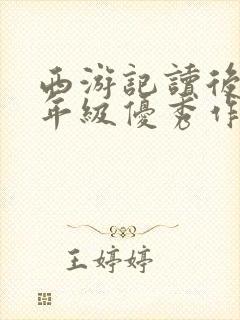 西游記讀後
年級優秀作
王婷婷